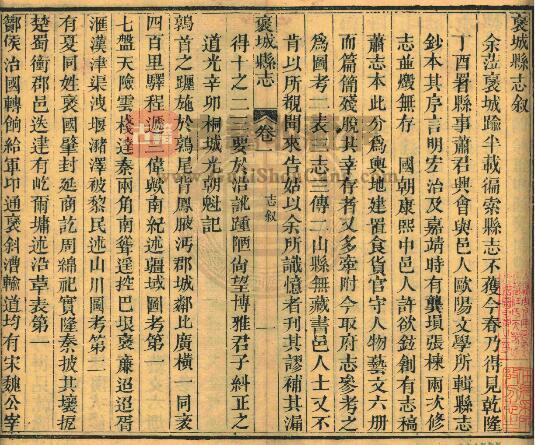 褒城縣志叙
余蒞褒城踰半載徧索縣志不獲今春乃得見乾隆
丁酉署縣事蕭君興會與邑人歐陽文學所輯縣志
鈔本其序言明宏治及嘉靖時有龔瑣張棟兩次修
志並燬無存　國朝康熙中邑人許欲鉉創有志稿
蕭志本此分為輿地建置食貨官守人物藝文六册
而篇簡殘脫其幸存者又多牽附今取府志參考之
為圖考二表一志三傳二山縣無藏書邑人士又不
肯以所觀聞來告姑以余所識憶者刊其謬補其漏
得十之二三要於治訛踵陋尚望博雅君子糾正之
道光辛卯桐城光朝魁記
褒城縣志
卷
志叙
一
鶉首之躔施於鶉尾肯鳳
沔郡城鄰比廣橫一同袤
四百里驛程
二偉歟南紀述疆域圖考第一
七盤天險雲棧達秦兩角南聳遥控巴
襃廉迢迢胥
滙漢津渠洩堰瀦澤被黎民述山川圖考第二
有夏同姓褒國肇封延商訖周綿祀實隆秦披其壤
楚蜀衝郡邑迭建有屹
墉述沿革表第一
酇侯治國轉餉給軍卭通褒斜漕輸道均有宋魏公宰